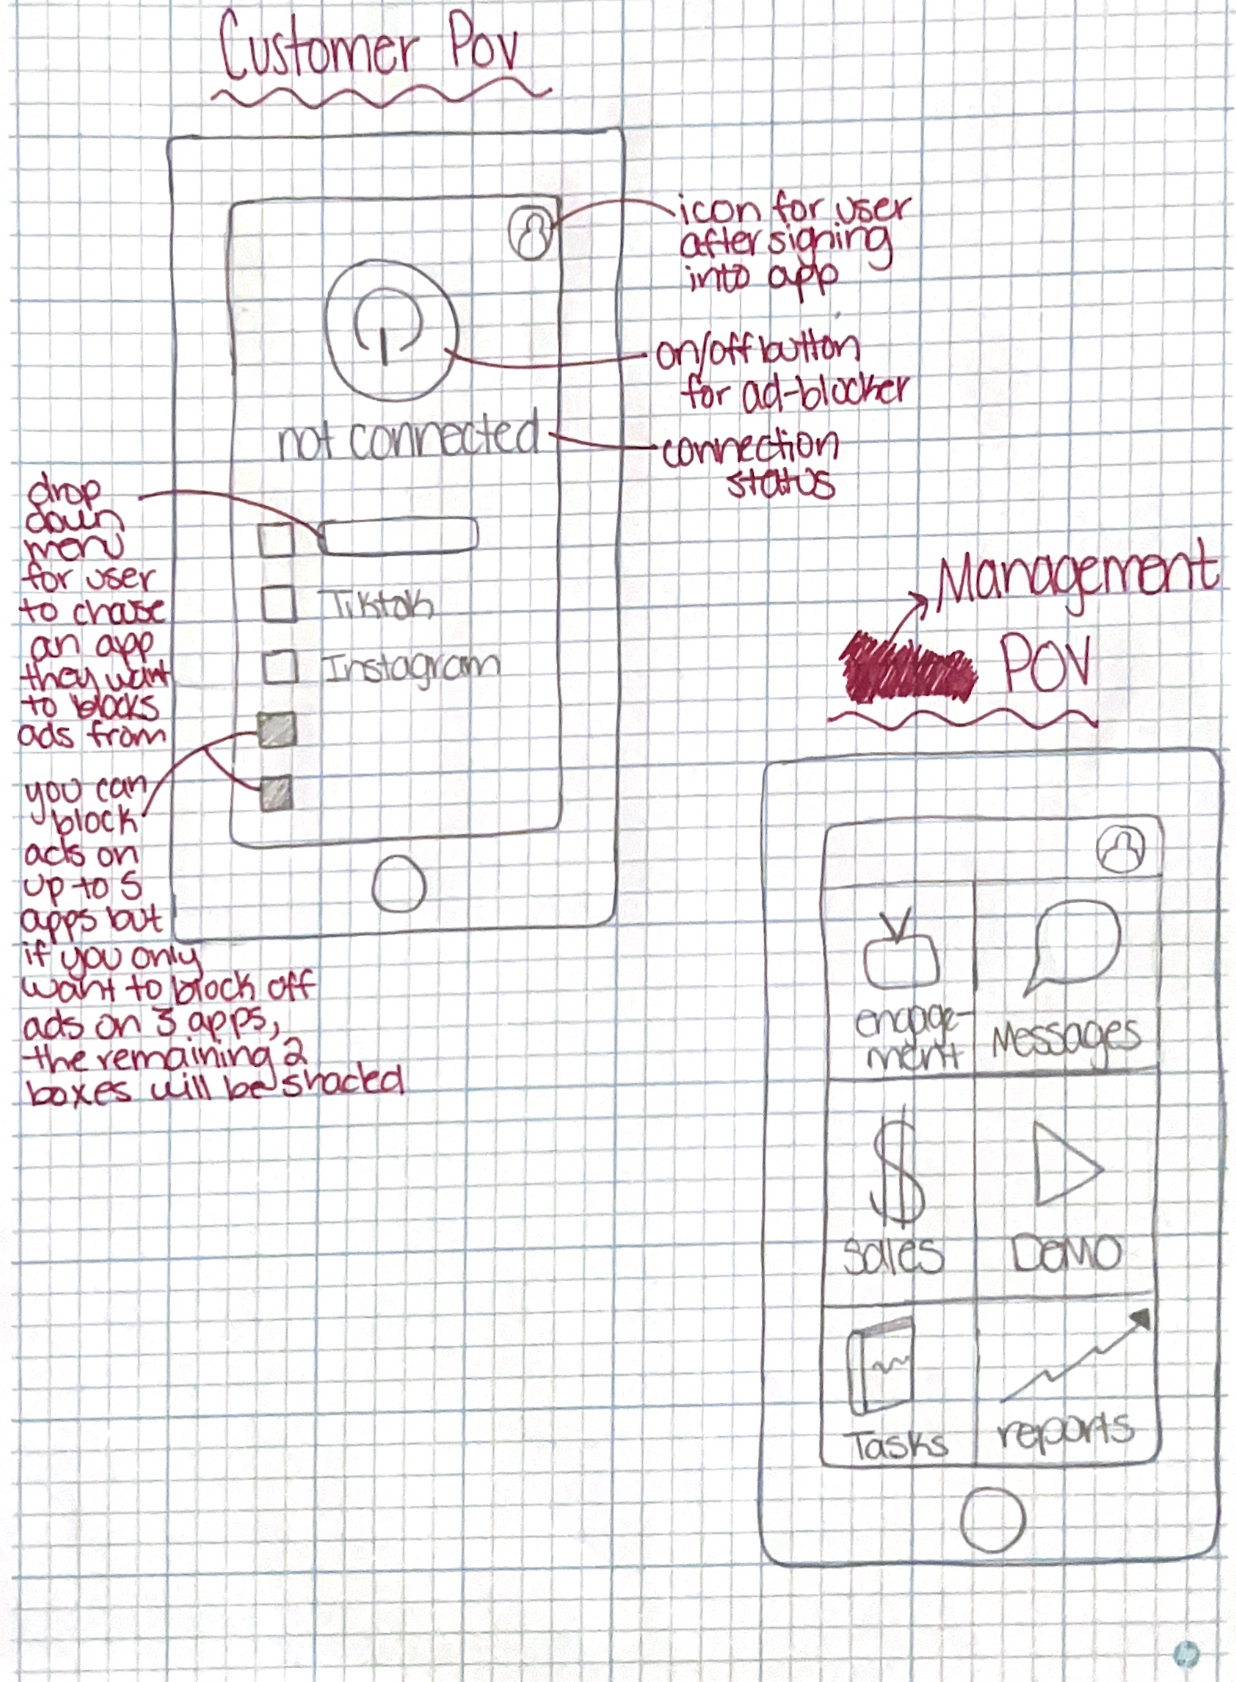 Customer Pov
icon for user
after signing
into app
on/off button
for ad-blocker
not connected
connection
status
drop
down
menu
for user
to chose
an app
they want
to blocks
ads from
Tiktok
Instagram
you can
block
ads on
up to 5
apps but
if you only
want to block off
ads on 3 apps,
the remaining 2
boxes will be shaded
Management
POV
engage-
ment
Messages
Sales
Demo
Tasks
reports